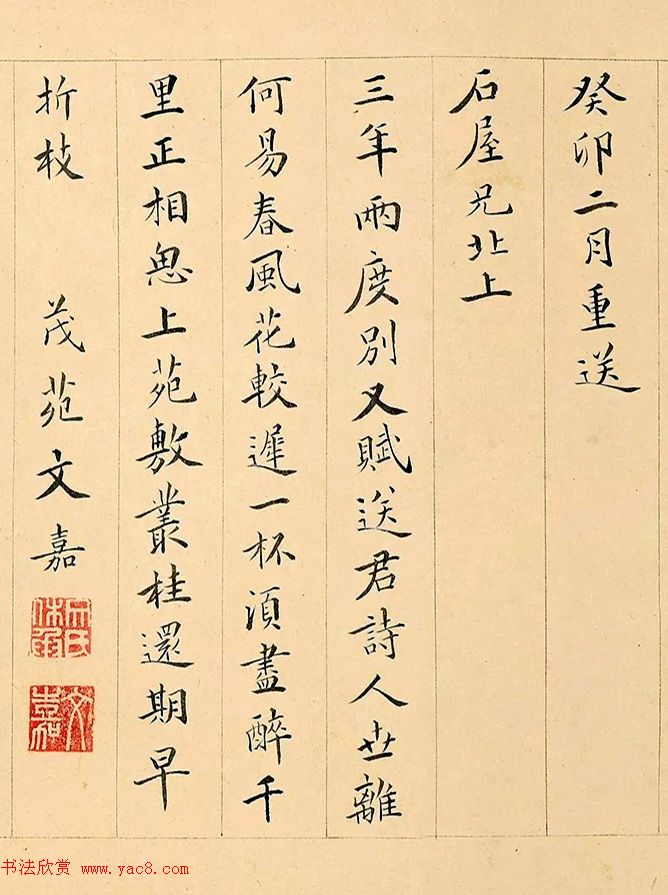 癸卯二月重送
石屋兄北上
三年兩度別又賦送君詩人世離
何易春風花較遲一杯須盡醉千
里正相思上苑敷叢桂還期早
折枝 茂苑文嘉
文嘉
书法欣赏 www.yac8.com